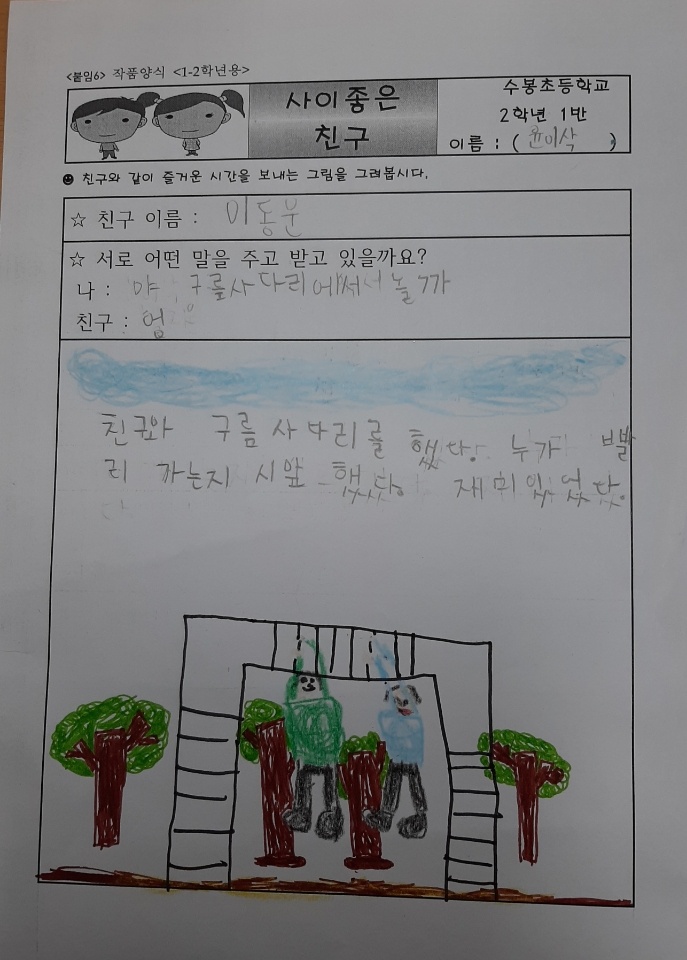 <붙임6> 작품양식 <1-2학년용>
사이좋은
친구
수봉초등학교
2학년 1반
이름 : ( 윤이삭 )
☻ 친구와 같이 즐거운 시간을 보내는 그림을 그려봅시다.
☆ 친구 이름 : 이동운
☆ 서로 어떤 말을 주고 받고 있을까요?
나 : 야 구름사다리에서 놀까
친구 : 엄
친구와 구름사다리를 했다. 누가 빨
리 가는지 시앞 했다. 재미있었다.